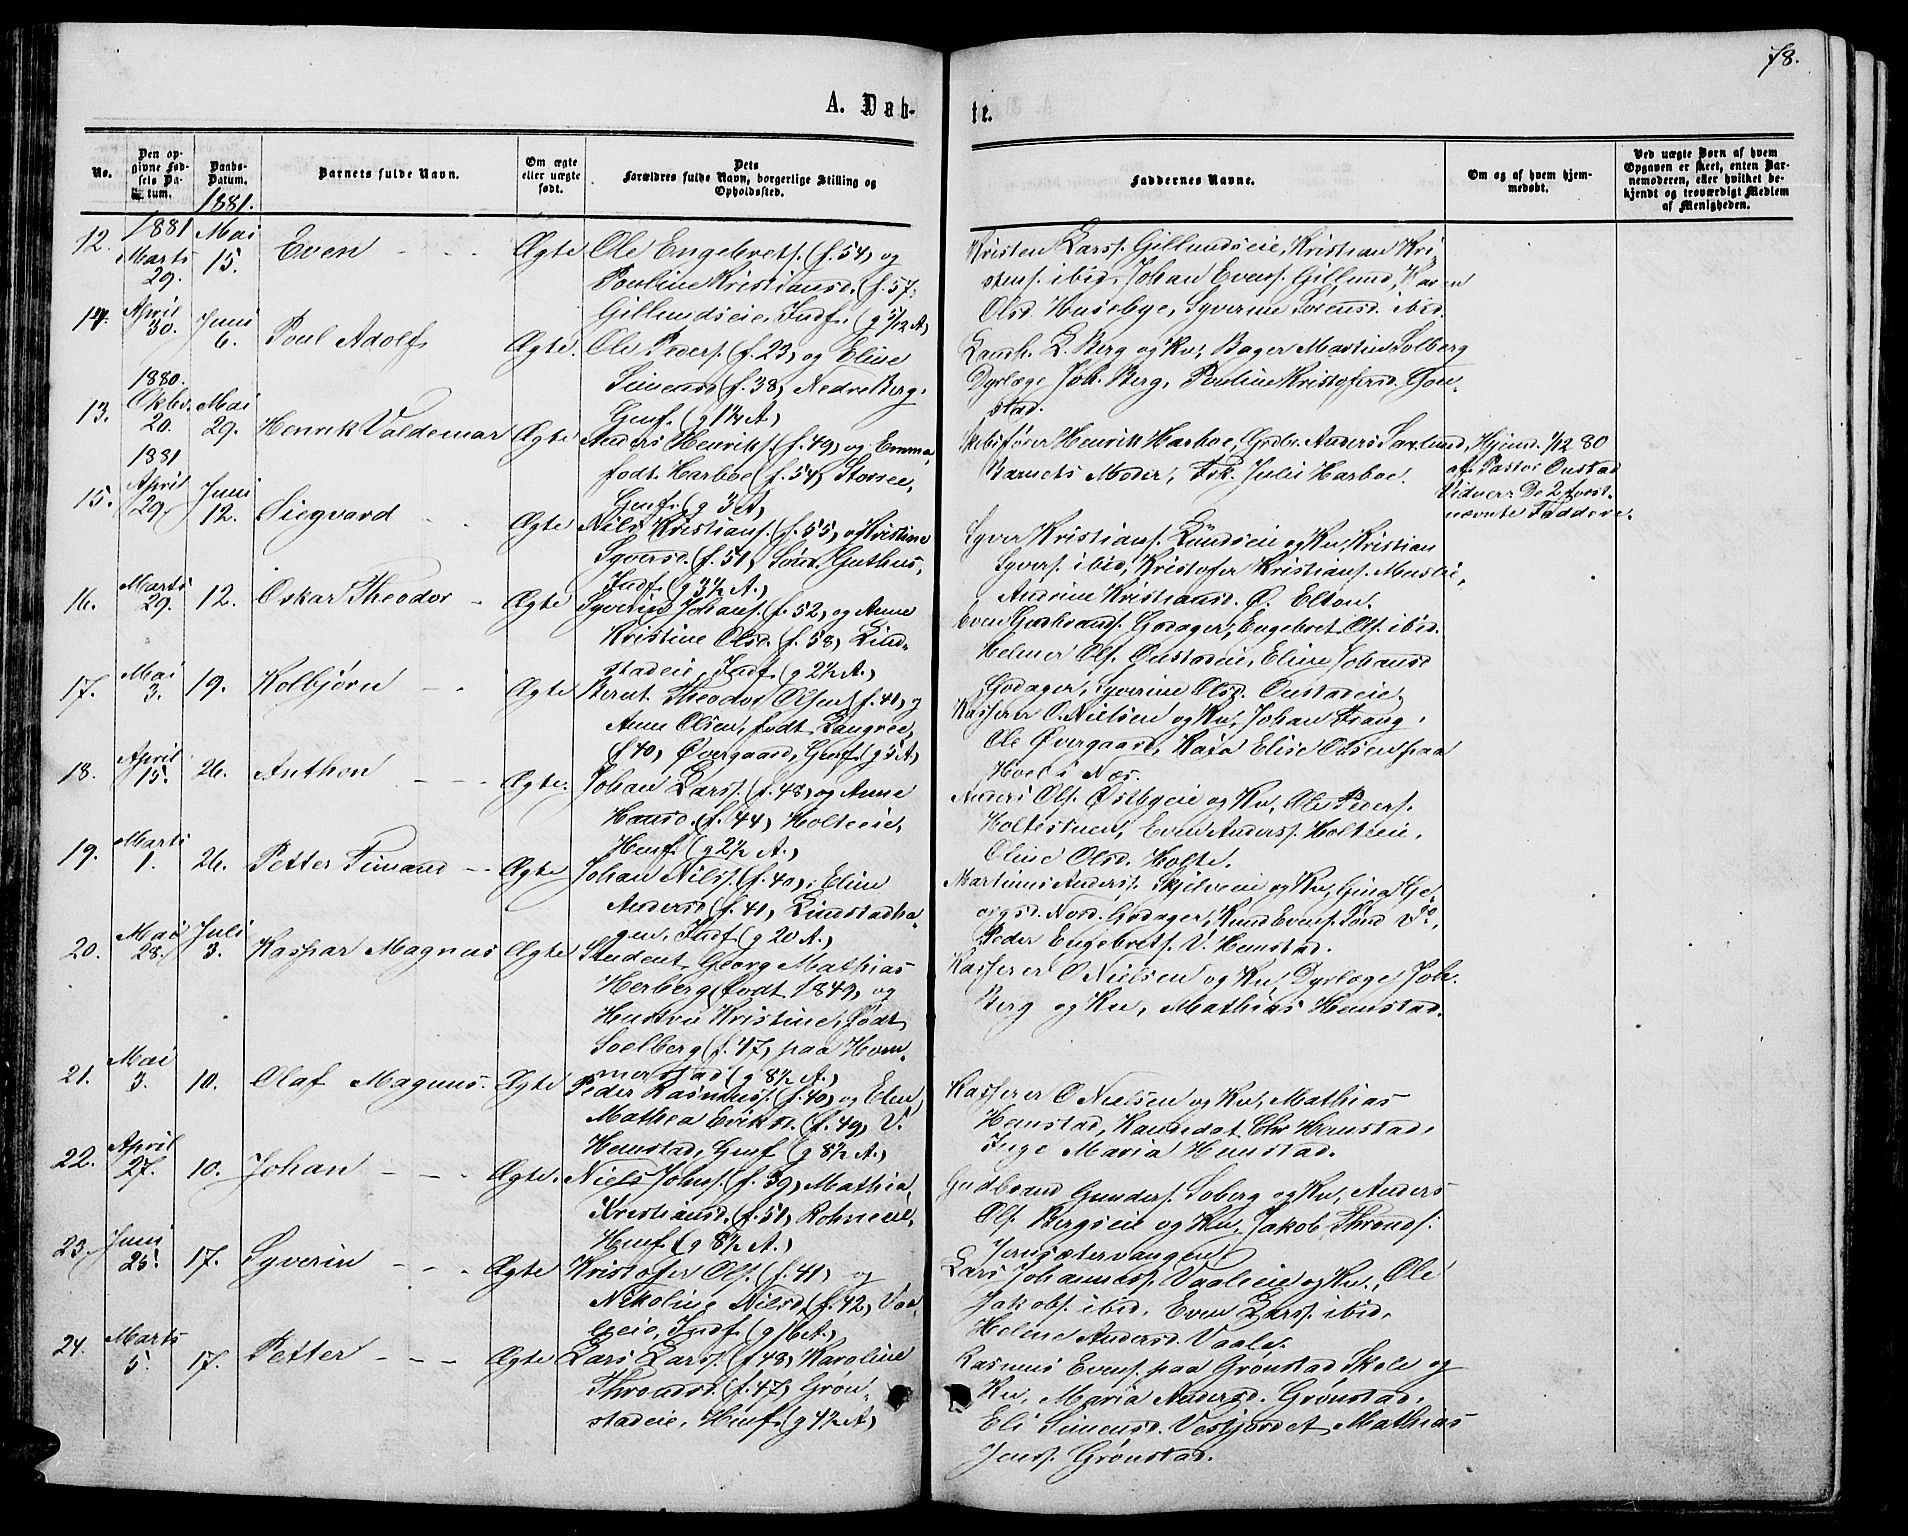 78.
A. Døb-
te.
No.
Den op-
givne Fød-
sels Da-
tum.
Daabs-
Datum.
1881.
Barnets fulde Navn.
Om ægte
eller uægte
født.
Dets
Forældres fulde Navn, borgerlige Stilling og
Opholdssted.
Faddernes Navne.
Om og af hvem hjem-
medøbt.
Ved uægte Børn af hvem
Opgaven er skeet, enten Bar-
nemoderen, eller hvilket be-
kjendt og troværdigt Medlem
af Menigheden.
12.
1881
Marts
29.
Mai
15.
Even
Ægte
Ole Engebrets. (f. 54) og
Pouline Kristiansd. (f. 57,
Gillundseie, Indf. (g 5/12 A)
Kristen Larss. Gillundseie, Kristian Kri-
stens. ibid, Johan Evens. Gillund, Karen
Olsd. Husebye, Syverine Sorensd. ibid.
14.
April
30.
Juni
6.
Poul Adolf
Ægte.
Ole Peders. (f. 23) og Eline
Simensd (f. 38) Nedre Berg,
Gmf. (g 14 A)
Landh. L. Berg og Kv, Bager Martin Solberg
Dyrlæge Joh. Berg, Pouline Kristofersd. Gon-
stad.
13.
1880.
Oktbr.
20.
Mai
29.
Henrik Valdemar
Ægte
Anders Henriks. (f. 49) og Emma,
født Harboe (f. 54) Storsee,
Gmf. (g 3 A)
Skibsfører Henrik Harboe, Gdbr. Anders Saxlund,
Barnets Moder, Frk. Julie Harboe.
Hjemd. 1/12 80
af Pastor Onstad
Vidner: De 2 først-
nævnte Faddere.
15.
1881
April
29.
Juni
12.
Siegvard
Ægte
Nils Kristians. (f. 55) og Kristine
Syversd. (f. 51) Søndr. Guthus,
Indf. (g 3½ A.)
Syver Kristians. Lundseie og Kv, Kristian
Syvers. ibid, Kristofer Kristians. Muslie,
Andrine Kristiansd. Ø. Elton.
16.
Marts
29.
12.
Oskar Theodor
Ægte
Syverius Johans. (f. 52) og Anne
Kristine Olsd. (f. 58) Lind-
stadeie, Indf. (g 2½ A.)
Even Gudbrands. Godager, Engebret Ols. ibid.
Helmer Ols. Onstadeie, Eline Johansd
Godager, Syverine Olsd. Onstadeie.
17.
Mai
3.
19.
Kolbjørn
Ægte
Bernt Theodor Olsen (f. 41) og
Anne Olsen, født Langsee,
(f. 40) Øvergaard, Gmf. (g 5 A)
Kasserer O. Nielsen og Kv, Johan Frang,
Ole Øvergaard, Kaja Elise Olsen paa
Hoel i Næs.
18.
April
15.
26.
Anthon
Ægte.
Johan Larss. (f. 48) og Anne
Hansd. (f. 44) Holteeie,
Hmf. (g 2½ A.)
Anders Ols. Østbyeie og Kv, Ole Peders.
Holtestuen, Even Anderss. Holteeie,
Oline Olsd. Holte.
19.
Marts
1.
26.
Petter Timand
Ægte
Johan Nilss. (f. 40) Eline
Andersd (f. 41) Lindstadha-
gen, Indf. (g 20 A.)
Martinus Anders. Skjelveie og Kv, Gina Ge-
orgsd. Nord. Godager, Knud Evens. Sønd Do,
Peder Engebrets. V. Hemstad.
20.
Mai
28.
Juli
3.
Kaspar Magnus
Ægte
Student Georg Mathias
Herberg (født 1849) og
Hustru Kristine, født
Soelberg (f. 47) paa Hom-
merstad (g 8½ A.)
Kasserer O Nielsen og Kv, Dyrlæge Joh.
Berg og Kv, Mathias Hemstad.
21.
Mai
3.
10.
Olaf Magnus.
Ægte
Peder Rasmuss. (f. 40) og Elen
Mathea Eriksd. (f. 49) V.
Hemstad, Gmf (g 8½ A.)
Kasserer O Nielsen og Kv, Mathias
Hemstad, Kandidat Chr Hemstad,
Inge Maria Hemstad.
22.
April
27.
10.
Johan
Ægte.
Niels Johns. (f. 39) Mathia
Kristiansd. (f. 51) Rohneeie,
Hmf. (g 8½ A.)
Gudbrand Gunders. Soberg og Kv, Anders
Ols. Bergseie og Kv, Jakob Thronds.
Jønsætervangen
23.
Juni
25.
17.
Syverin
Ægte
Kristofer Ols. (f. 41) og
Nikoline Nilsd (f. 42) Vaa-
leeie, Indf. (g 16 A.)
Lars Johanness. Vaaleeie og Kv., Ole
Jakobs. ibid, Even Larss. ibid,
Helene Andersd. Vaale.
24.
Marts
5.
17.
Petter
Ægte
Lars Larss. (f. 48) Karoline
Throndsd. (f. 47) Grøn-
stadeie, Hmf. (g 4½ A)
Rasmus Evens. paa Grønstad Skole og
Kv, Maria Andersd. Grønstad,
Eli Simensd. Vesljordet, Mathias
Jenss. Grønstad.